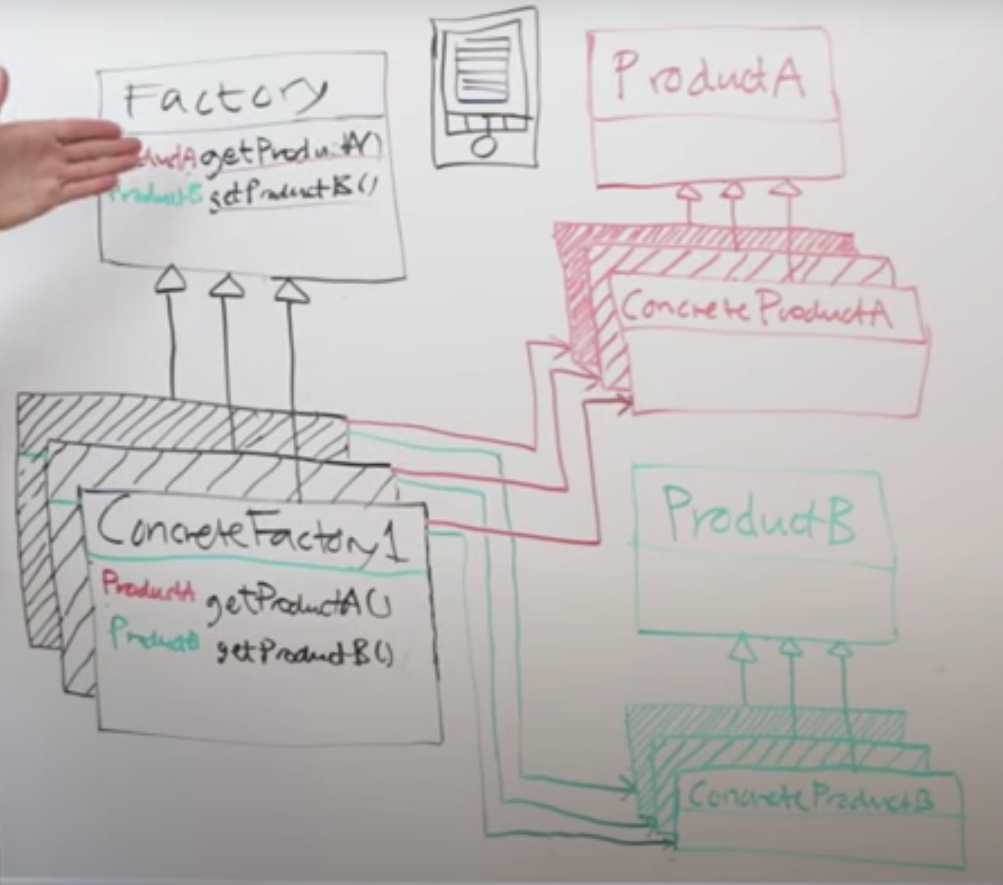 Factory
ductA getProductA()
ProductB getProductB()
ProductA
ConcreteProductA
ConcreteFactory1
ProductA getProductA()
ProductB getProductB()
ProductB
ConcreteProductB